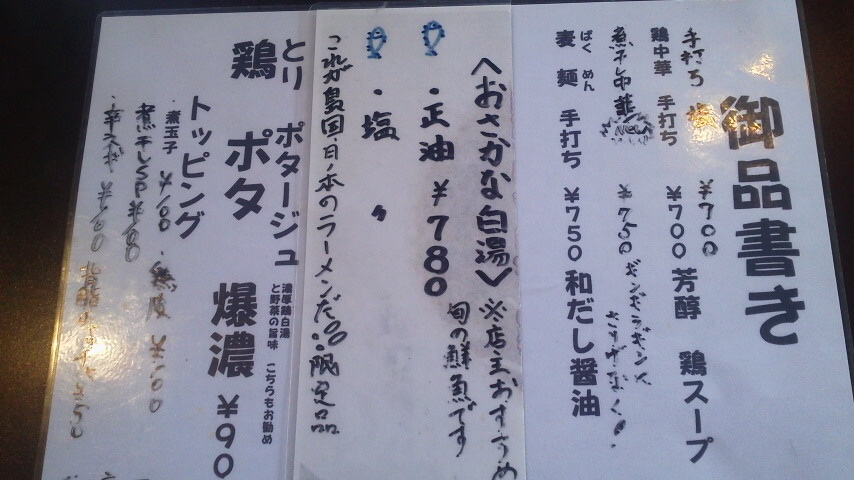 御品書き
手打ち
¥700
鶏中華 手打ち ¥700 芳醇 鶏スープ
煮干中華 ¥750 ギンギラギンに さりげなく!
ばく めん
麦 麺 手打ち ¥750 和だし醤油
〈おさかな白湯〉 ※店主おすすめ
旬の鮮魚です
・正油 ¥780
・塩 〃
これが島国・日ノ本のラーメンだ 限定品
とり ポタージュ
鶏 ポタ 爆濃 ¥90
濃厚鶏白湯
と野菜の旨味 こちらもお勧め
トッピング
・煮玉子 ¥100 ・鶏皮 ¥100
煮干しSP ¥100